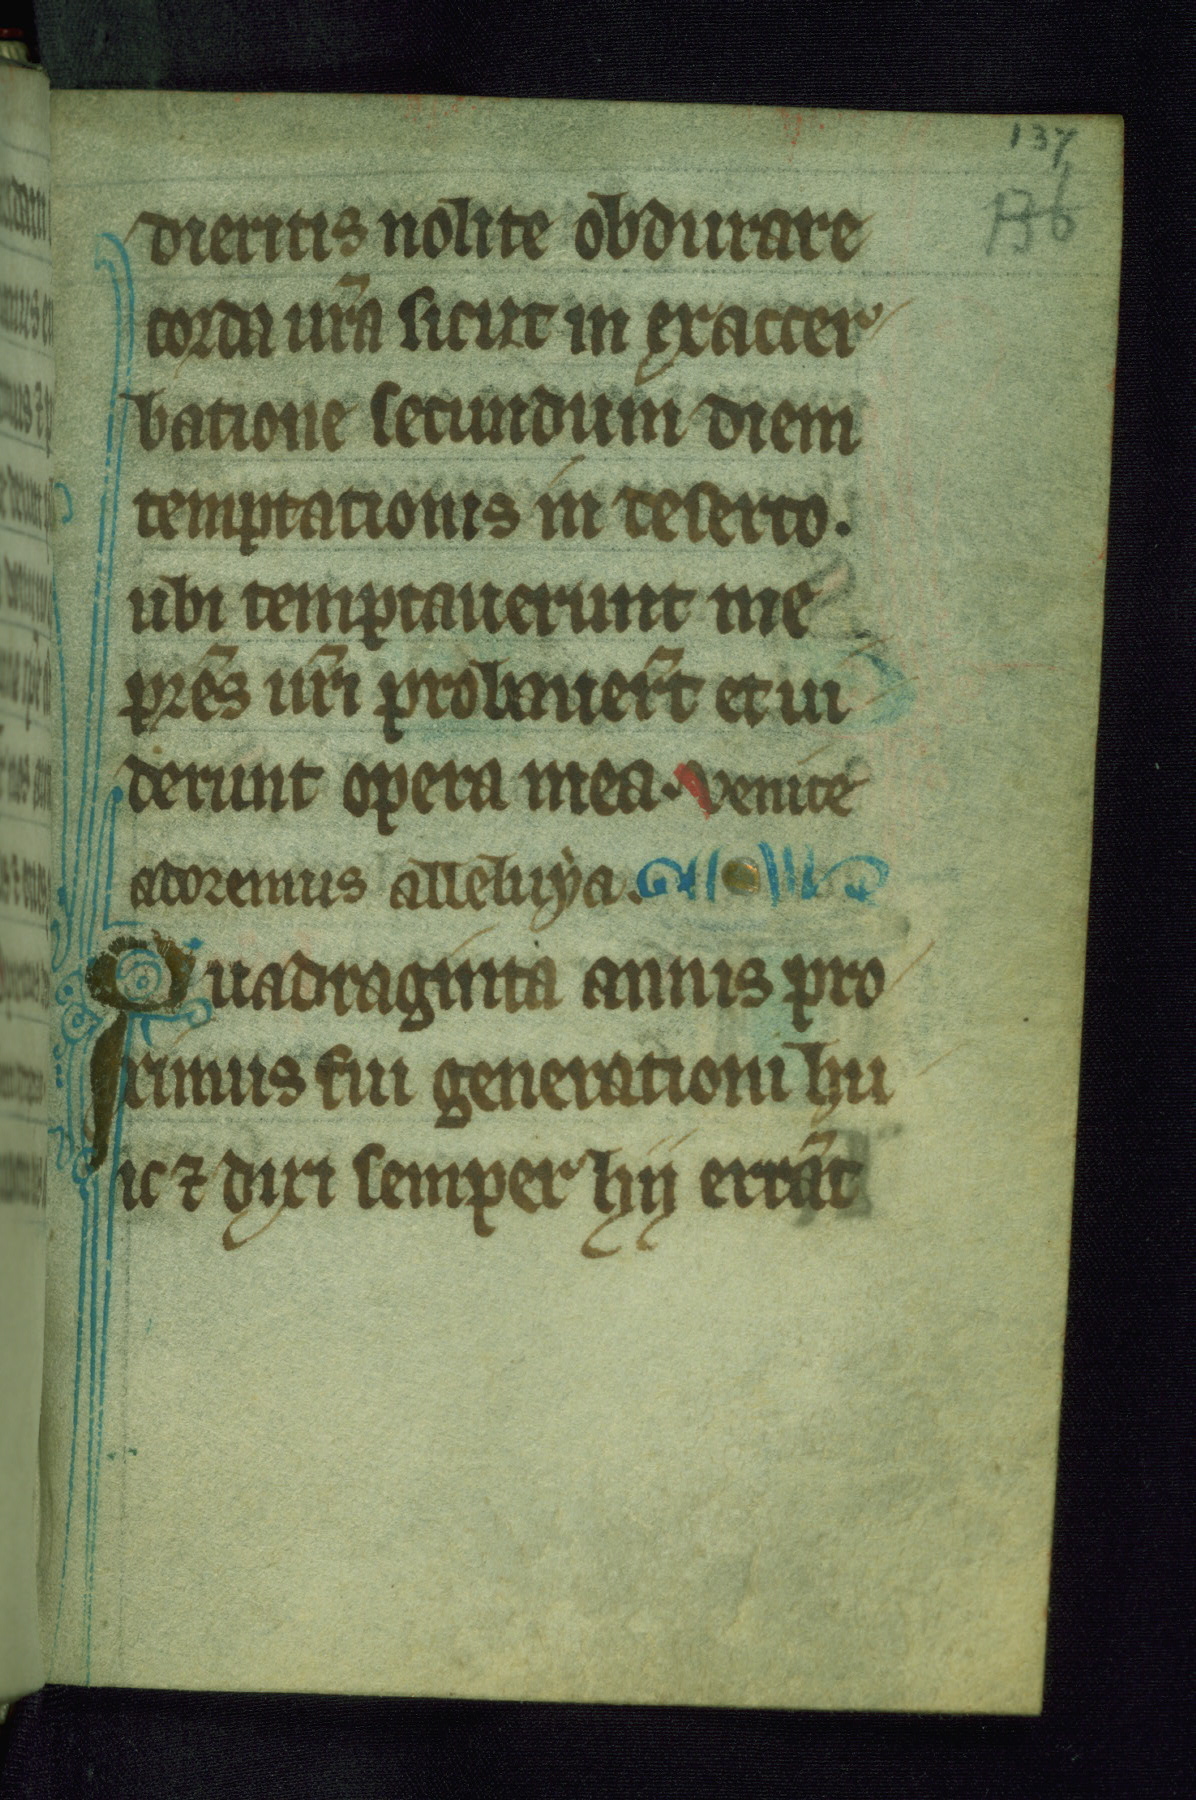 137
136
dieritis nolite obdurare
corda ur̄a sicut in exaccer
batione secundum diem
temptationis in deserto.
ubi temptauerunt me
pr̄es ur̄i probauer̄t et ui
derunt opera mea. venite
adoremus alleluya.
Quadraginta annis pro
ximus fui generationi hu
ic ⁊ dixi semper hij errāt